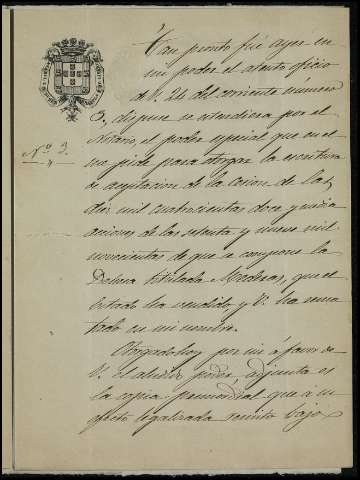 Tan pronto fué ayer en
mi poder el atento oficio
de V. 24 del corriente número
3, dispuse se estendiera por el
Notario, el poder especial que en el
Nº 3.
"
no pide para otorgar la escritura
de aceptacion de la cesion de las
diez mil cuatrocientas doce y media
acciones de las setenta y nueve mil
novecientas de que se compone la
Dehesa titulada Maderas, que el
Estado ha vendido y V. ha rema
tado en mi nombre.
Otorgado hoy por mi á favor de
V. el aludido poder, adjunta es
la copia primordial que á su
efecto legalizada remito bajo